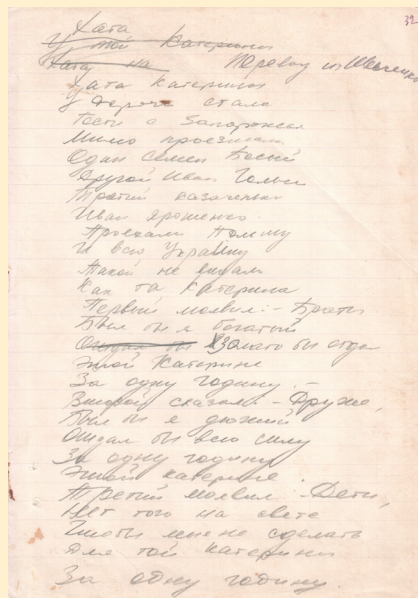 32
Хата
У той Катерини
Хата на Перевод из Шевченко
Хата Катерины
У дороги стала
Гости с Запорожья
Мимо проезжали
Один Семен Босый
Другой Иван Голый
Третий казаченька
Иван Ярошенко.
Проехали Польшу
И всю Украину
Такой не видали
Как та Катерина
Первый молвил: – Браты
Был бы я богатый
Отдал бы Золото бы отдал
Этой Катерине
За одну годину. –
Второй сказал: – Друже,
Был бы я дюжий
Отдал бы всю силу
За одну годину
Этой Катерине.
Третий молвил: – Дети,
Нет того на свете
Чтобы мне не сделать
Для той Катерины
За одну годину.